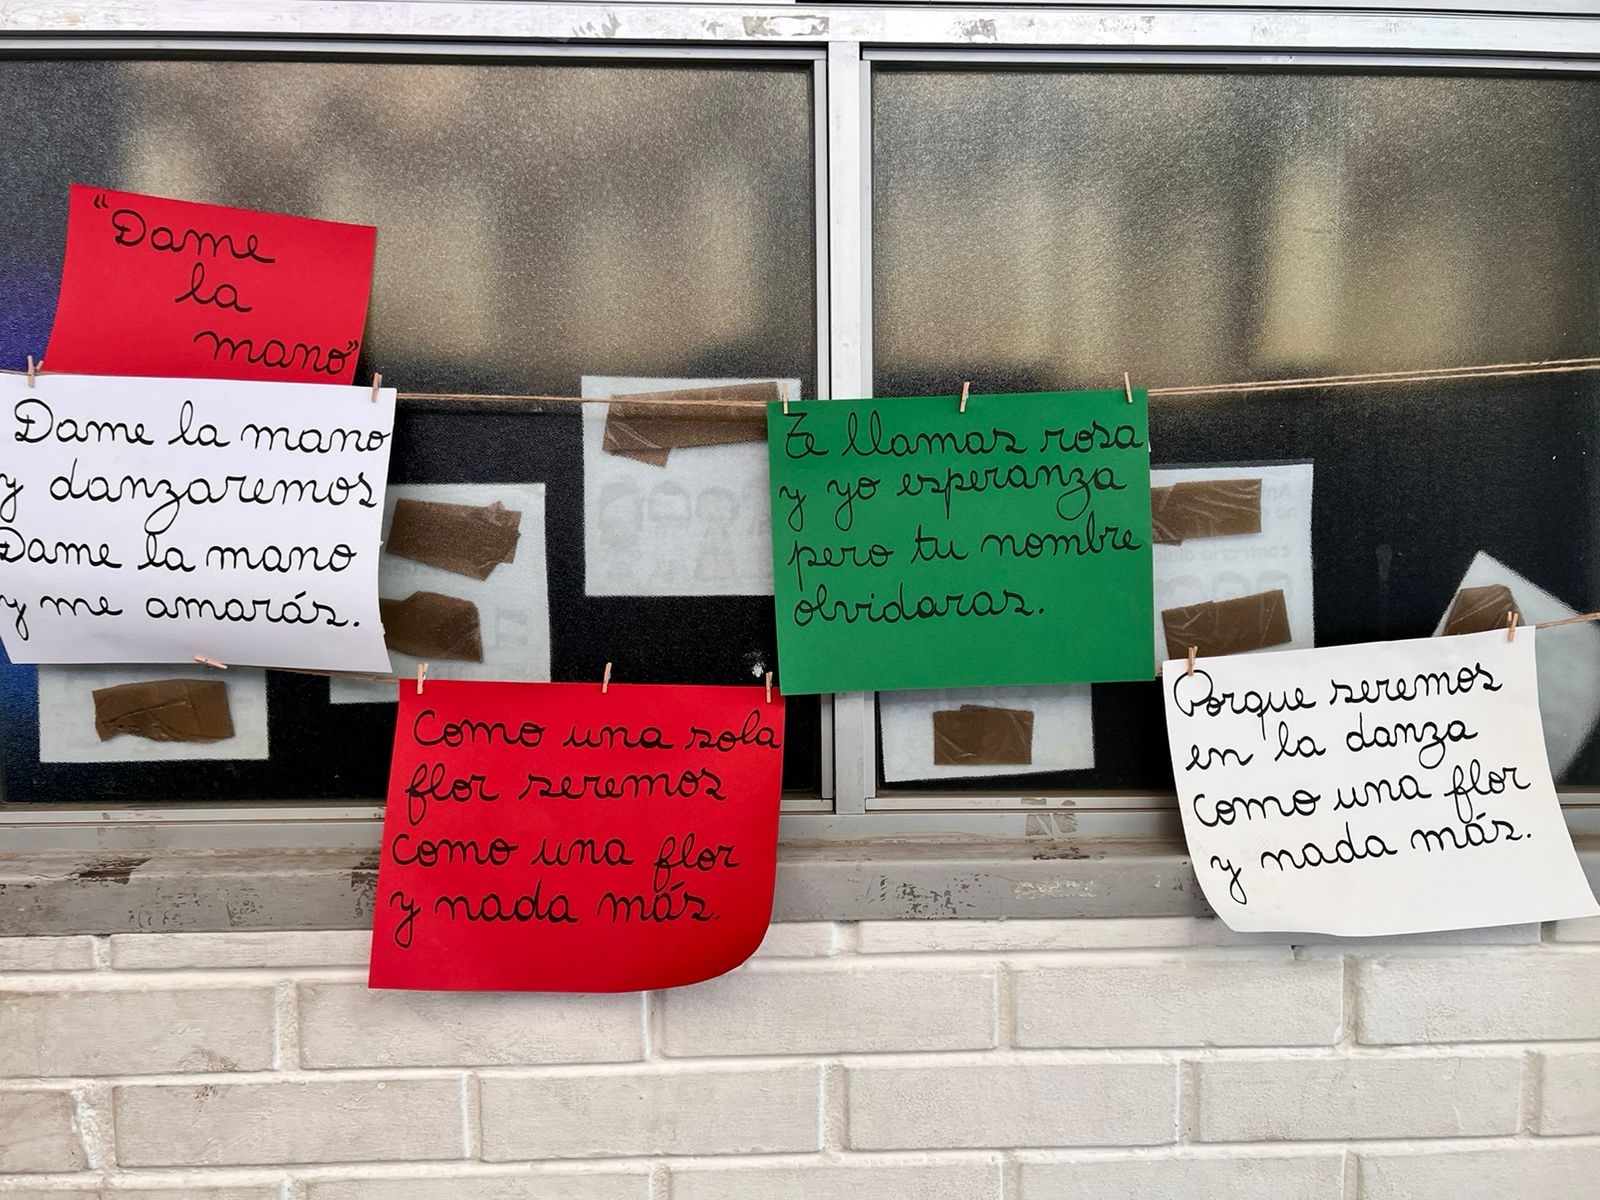 "Dame
la
mano"
Dame la mano
y danzaremos
Dame la mano
y me amarás.
Como una sola
flor seremos
Como una flor
y nada más.
Te llamas rosa
y yo esperanza
pero tu nombre
olvidaras.
Porque seremos
en la danza
como una flor
y nada más.